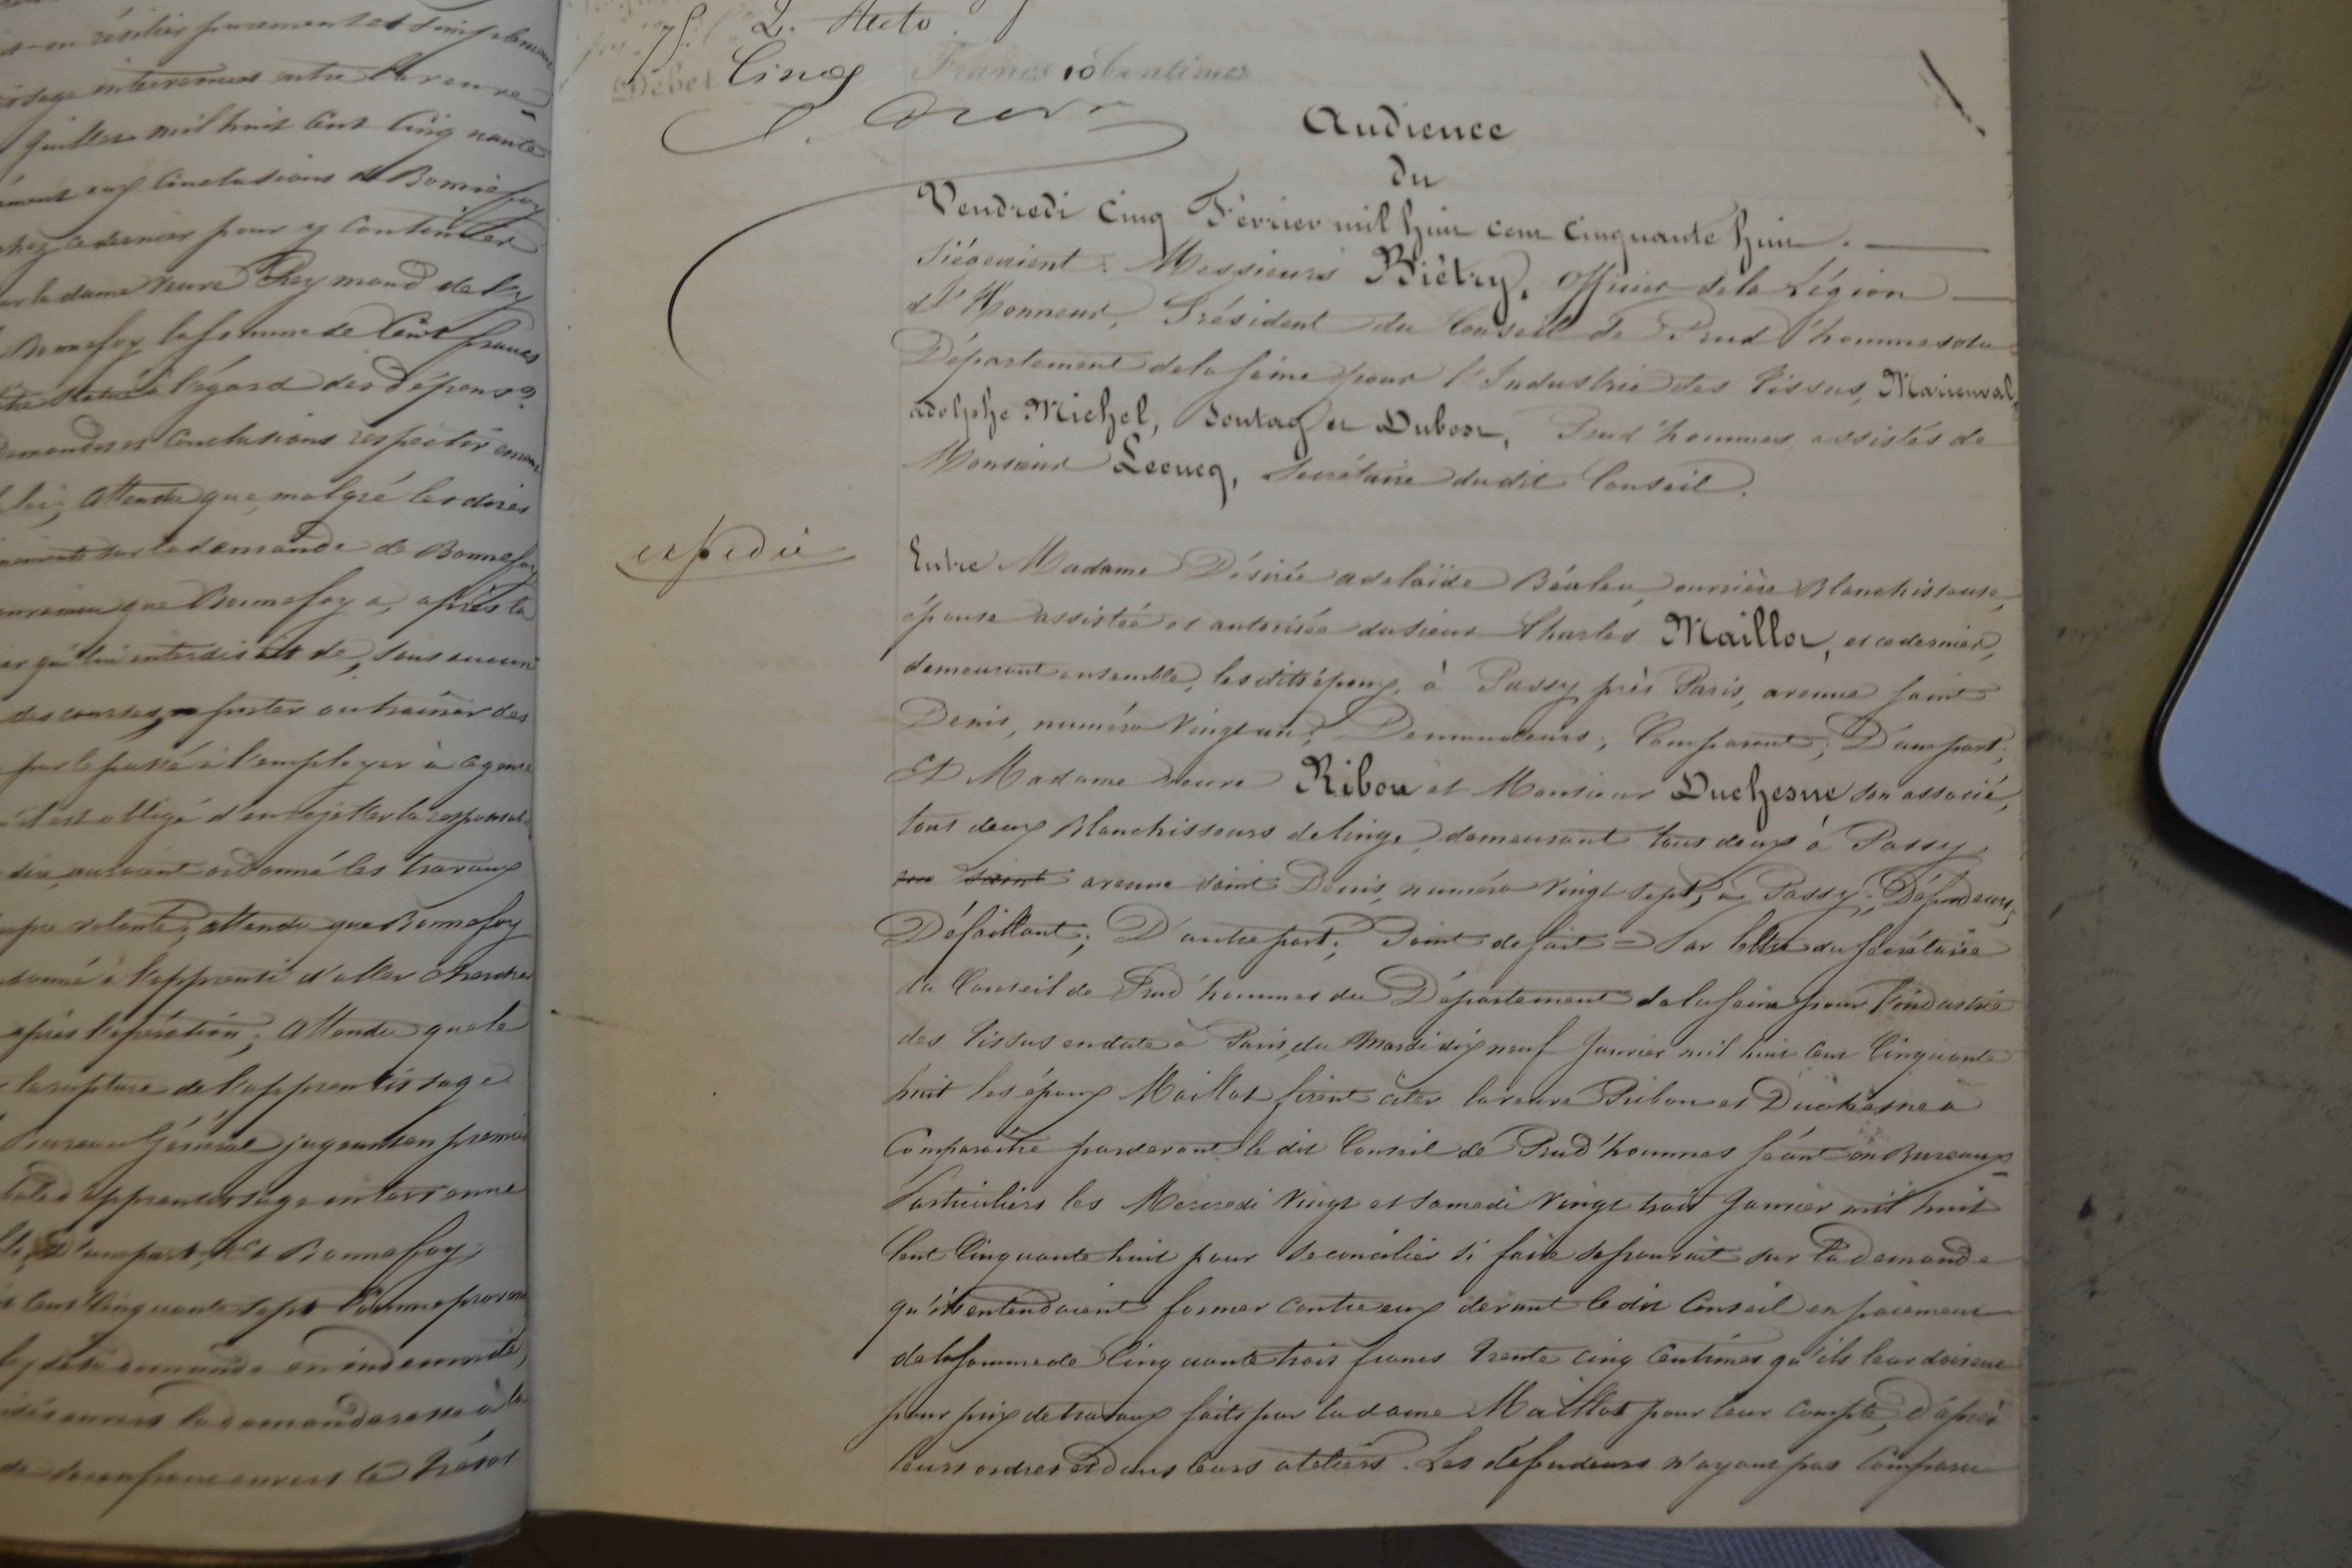 s-en résilier purement et simplement
issage intervenues entre la veuve
Juillet mil huit cent cinquante
ément aux conclusions de Bonnefoy
chez ce dernier pour y continuer
par la dame veuve Reymond de l'y
Bonnefoy la somme de Cent francs
être statué à l'égard des dépens?
demandes et conclusions respectivement
loi; Attendu que, malgré les dires
nements sur la demande de Bonnefoy
que Bonnefoy a, après la
er qu'lui interdisait de, sous aucun
des courses, porter ou traîner des
par le passé à l'employer à ce genre
il est obligé d'en rejetter la responsabi
auraient ordonné les travaux
opre volonté; attendu que Bonnefoy
donné à l'apprenti d'aller chercher
après l'opération; Attendu que le
la rupture de l'apprentissage
Bureau Général jugeant en premier
d'apprentissage intervenue
d'une part, Et Bonnefoy;
t cent cinquante sept comme
de sa demande en indemnité,
envers la demanderesse à la
envers le trésor
2. Recto
Débet Cinq Francs 10 Centimes
Audience
du
Vendredi Cinq Février mil huit cent cinquante huit.
Siégeaient: Messieurs Biétry, Officier de la Légion
d'Honneur, Président du Conseil de Prud'hommes du
Département de la Seine pour l'Industrie des Tissus, Marienval,
adolphe Michel, Sontag et Dubosc, Prud'hommes, assistés de
Monsieur Lecucq, Secrétaire dudit Conseil.
expédié
Entre Madame Désirée adelaïde Béaleu, ouvrière Blanchisseuse,
épouse assistée et autorisée du sieur Charles Maillot, et ce dernier,
demeurant ensemble, lesdits époux, à Passy près Paris, avenue Saint
Denis, numéro vingt un; Demandeurs; Comparant; D'une part;
Et Madame veuve Ribou et Monsieur Duchesne son associé,
tous deux Blanchisseurs de linge, demeurant tous deux à Passy,
rue Saint avenue Saint Denis, numéro vingt sept, à Passy; Défendeurs;
Défaillant; D'autre part; Point de fait = Par lettre du Secrétaire
du Conseil de Prud'hommes du Département de la Seine pour l'industrie
des Tissus en date à Paris, du Mardi dix neuf Janvier mil huit cent Cinquante
huit les époux Maillot firent citer la veuve Ribou et Duchesne à
Comparaître pardevant le dit Conseil de Prud'hommes séant en Bureaux
Particuliers les Mercredi vingt et samedi vingt trois Janvier mil huit
Cent Cinquante huit pour se concilier si faire se pouvait sur la demande
qu'ils entendaient former contre eux devant ledit Conseil en paiement
de la somme de Cinquante trois francs trente cinq Centimes qu'ils leur doivent
pour prix de travaux faits par la dame Maillot pour leur compte, d'après
leurs ordres et dans leurs ateliers. Les défendeurs n'ayant pas Comparu